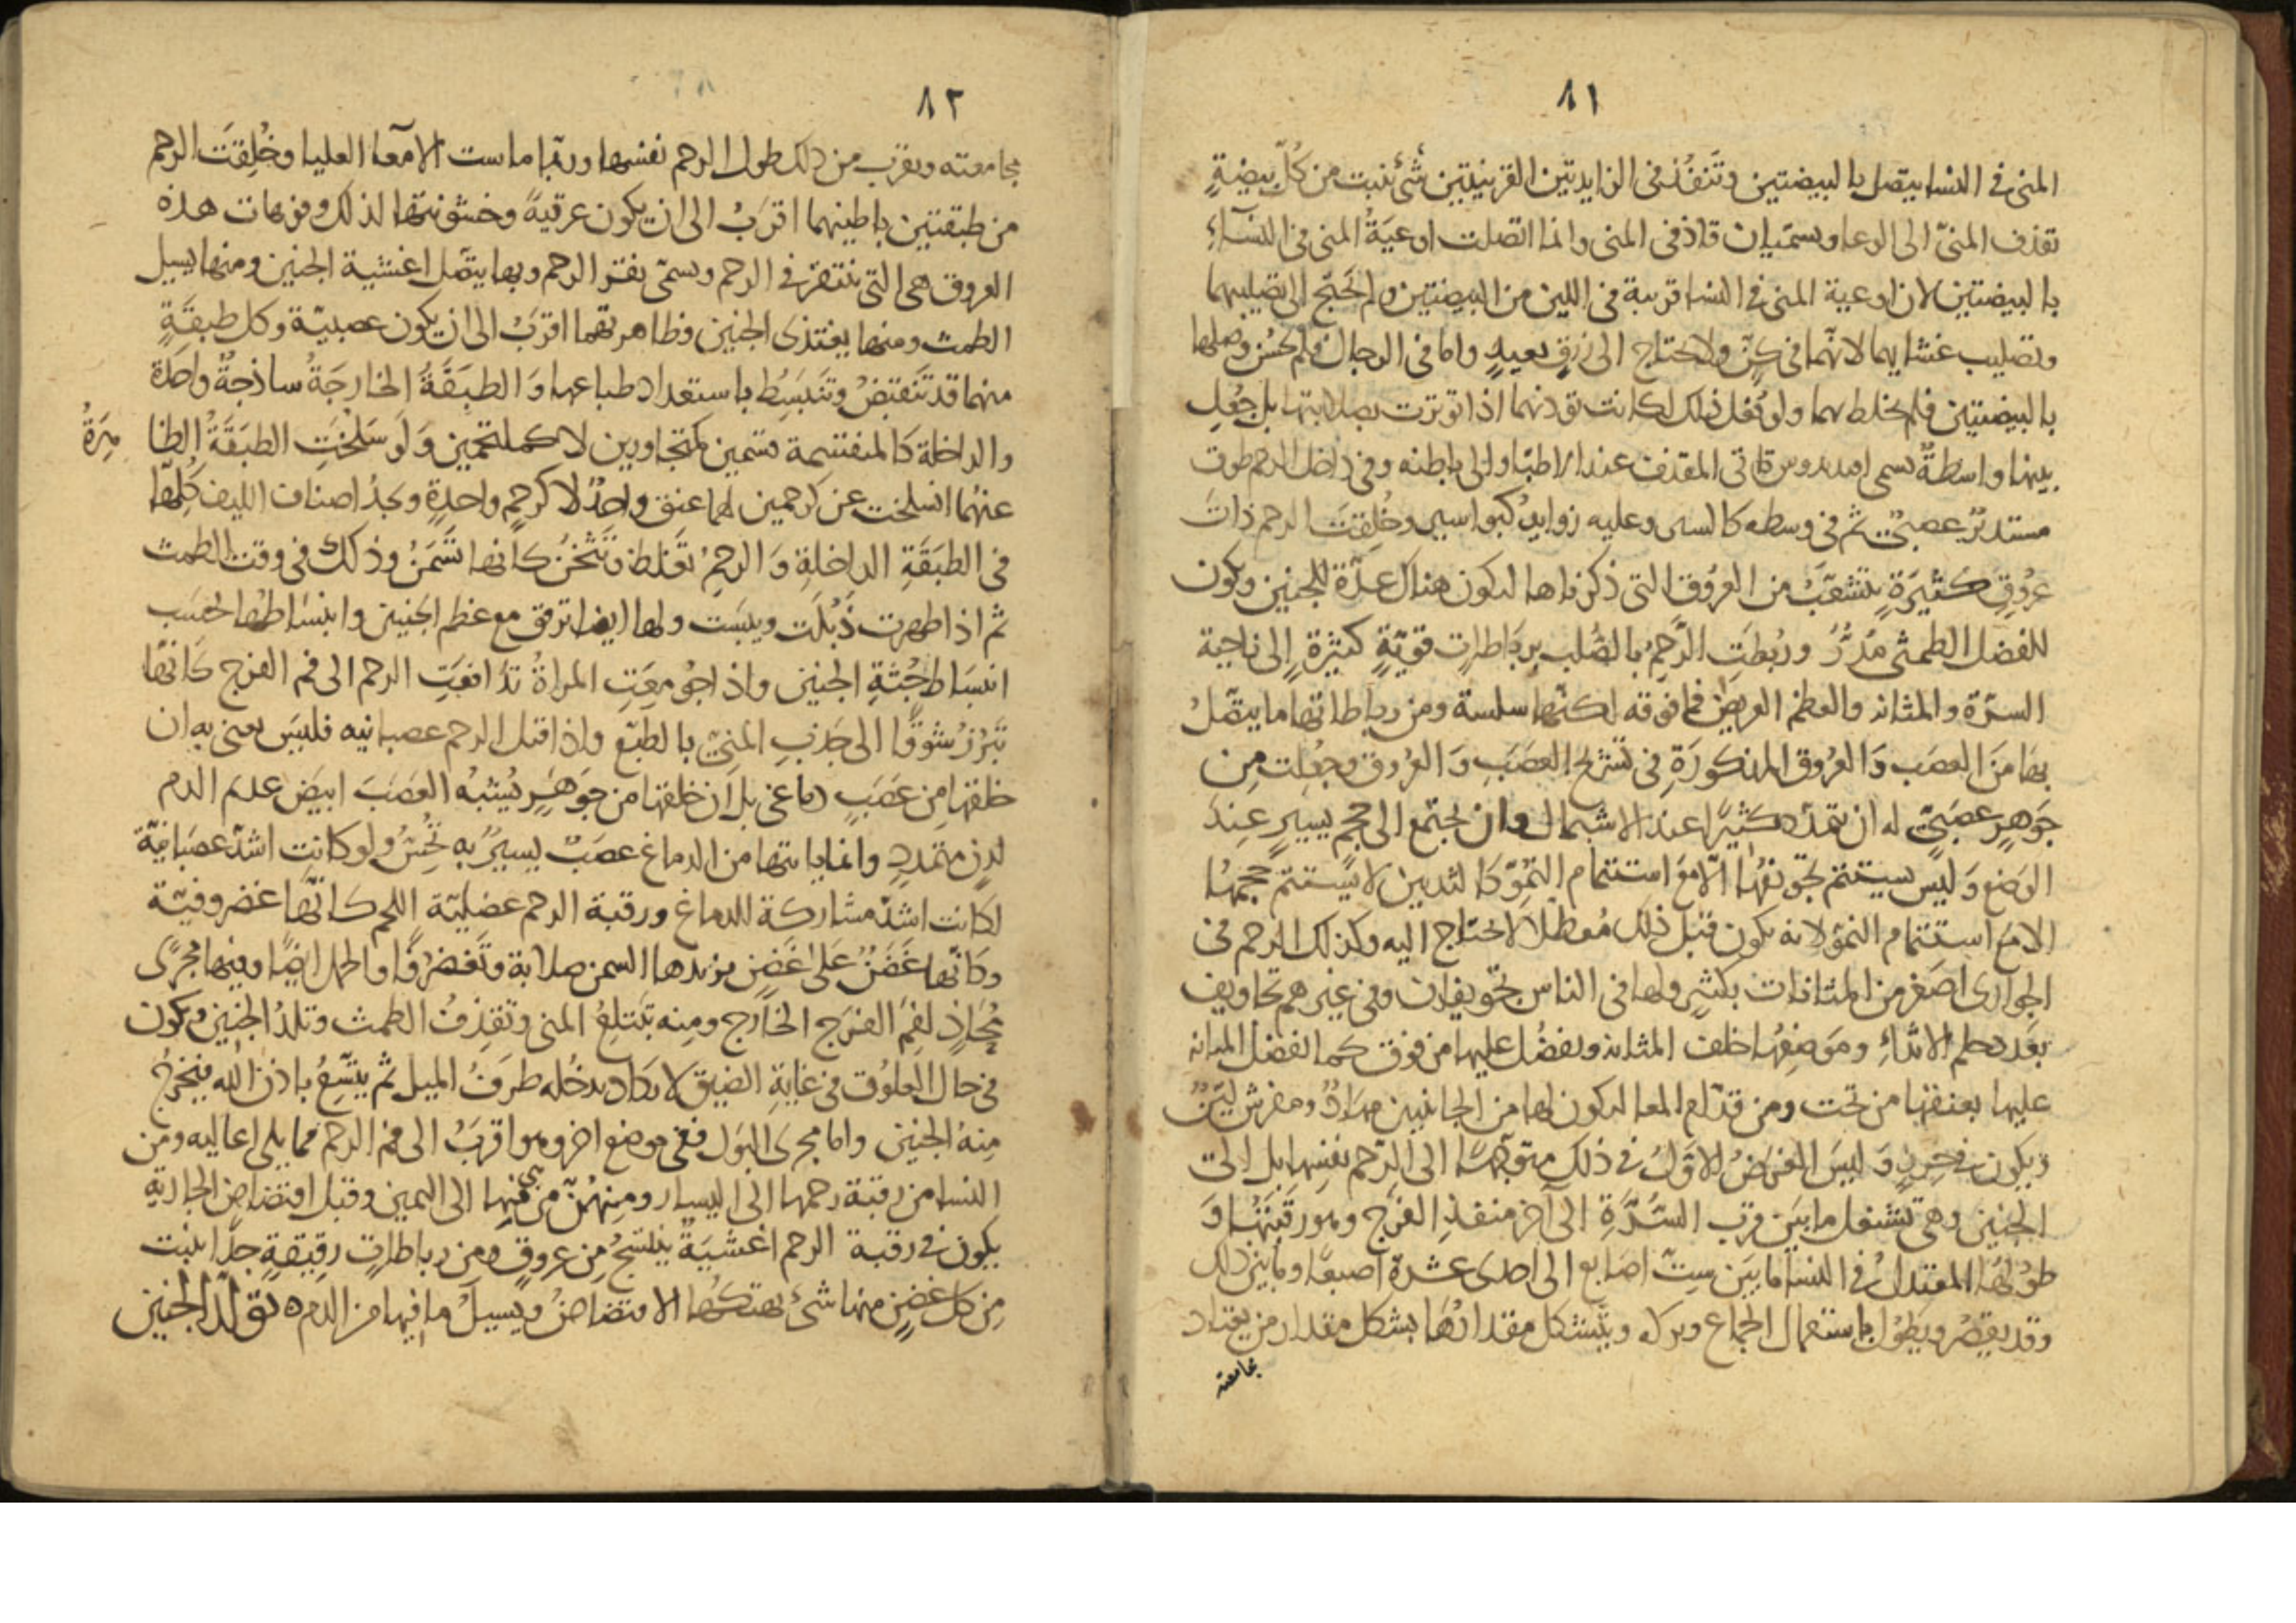 ٨١
المنى فى النسا يتصل بالبيضتين وتَنفُذ فى الزايدتين القرنيتين شئ ينبت من كُلّ بيضةٍ
تقذف المنىّ الى الوعا ويسمّيان قاذفى المنى وانما اتصلت اوعيَةُ المنى فى النسَآءِ
بالبيضتين لان اوعية المنى فى النسا قريبة فى اللين من البيضتين ولم يَحتَج الى تصليبهما
وتصليب غشايهما لانّهما فى كِنٍّ ولا يحتاج الى زرقٍ بعيدٍ واما فى الرجال فلم يحسُن وصلها
بالبيضتين فلم يخلط بهما ولو فُعل ذلك لكانت توذيهما اذا توترت بصلابتها بل جُعِل
بينهما واسطةٌ تسمى المقذف عند الاطبّا والى باطنه وفى داخل الرحم طوق
مستديرٌ عصبىٌ ثم فى وسطه كالسير وعليه زوايدُ كبواسير وخُلِقتَ الرحم ذاتَ
عرُوقٍ كثيرَةٍ يتشعَّبُ من العرُوق التى ذكرناها ليكون هناك عدّةً للجنين ويكون
للفضل الطمثى مَدَرٌّ ورُبطَتِ الرَّحِمُ بالصُلب برِبَاطاتٍ قويّةٍ كثيرةٍ الى ناحية
السرّة والمثانه والعظم العريض فما فوقه لكنّها سلسة ومن رباطاتها ما يتّصلُ
بهَا مَن العصَب وَالعرُوق المذكورَةِ فى تشريح العصَبِ وَالعرُوق وجُعِلت مِن
جَوهِرٍ عصَبىٍّ له ان تتمدّد كثيرًا عند الاشتمال وان يجتمع الى حجمٍ يسيرٍ عِندَ
الوَضع وَليسَ يستتم تجويفهُا الّا معَ استتمام النُموِّ كَالثديين لا يستتمّ حَجمهُا
الا مع استتمام النموِّ لانه يكون قبل ذلك مُعطّلًا لا يحتاج اليه وكذلك الرحم فى
الجوارى اصغر من المثانات بكثيرٍ ولها فى الناس تجويفان وفى غيرهم تجاويف
بعَدد حلم الاثداءِ ومَوضِعُهَا خلف المثانه ويفضُل عليها من فوق كما تفضل المثانه
عليها بعنقها من تحت ومن قدّام المعا ليكون لها من الجانبين مهَادٌ ومفرش ليّنٌ
ويكون فى حِرزٍ وَليسَ الغرَضُ الاوَّلُ فى ذلك متوجّهًا الى الرّحم نفسِهَا بل الى
الجنين وهى تشغل ما بَين قرب السُّرَّةِ الى آخر منفذِ الفَرج وهو رقبَتُها وَ
طولُهَا المعتدلُ فى النسَا ما بَين ستّ اصَابع الى احدى عشرة اصبعًا وما بين ذلك
وقد يقصُر ويَطوُل باستعمال الجماع وتركه ويتشكل مقدارُهَا بشكل مقدار من يعتاد
مجامعته
٨٢
مجامعته ويقرب من ذلك طول الرحم نفسها وربّما ماست الامعآ العليا وخُلِقَت الرحم
من طبقتين باطينهما اقرَبُ الى ان يكون عرقيةً وخشونتها لذلك وفوهات هذه
العروق هى التى تنتقر فى الرحم وتسمّى نقر الرحم وبها يتصّل اغشية الجنين ومنها يسيل
الطمث ومنها يغتذى الجنين وظاهرتهما اقرَبُ الى ان يكون عصبيّة وكل طبقَةٍ
منهما قد تَنقبَضُ وتنَبسِطُ باستعداد طباعها وَالطبقَةُ الخارجَةُ ساذجةٌ واحدةٌ
والداخلة كَالمنقسمة قسمين كمتجاورين لا كملتحمين وَلَو سَلَختِ الطبَقَةُ الظا هِرَةُ
عنهُما انسلخت عن كرحمين لهما عنقٍ واحدٌ لا كرحمٍ واحدةٍ ويجدُ اصناف الليف كُلِّهَا
فى الطبَقَةِ الداخلةِ وَالرحمِ تَغلظ وَتَثْخنُ كَانها تَسَّمَنُ وذلك فى وقت الطمث
ثم اذا طهرت ذَبُلَت ويبسَت ولها ايضا ترفق مع عظم الجنين وانبسَاطها بحسَب
انبسَاط جُثةِ الجنين واذا جُومِعَتِ المراةُ تدَافَعَتِ الرحم الى فم الفرج كَانّها
تبَرُزُ شوقًا الى جَذبِ المنىّ بالطبّع واذا قيل الرحم عصبانيه فليسَ يعنى به ان
خلقتها مِن عصَبٍ دماغى بل اَن خلقتها من جوَهَرٍ يُشبهُ العصَبَ ابيَضَ عديم الدم
لدنٍ متمدِدٍ وانما ياتيها من الدماغ عصَبٌ يسيرٌ به تحُسُّ ولو كانت اشدّ عصَبانيّة
لكانت اشدّ مشاركة للدماغ ورقبة الرحم عضليّة اللحم كَانّها غضروفيّة
وكَانّها غضَنٌ عَلى غَضنٍ يزيدها السمن صلابة وتَغَضرُفًا والحمل ايضًا وفيها مجرًى
مُحَاذٍ لفمَ الفَرَج الخَارج ومِنه تبَتلعُ المنى وتقذِفُ الطمث وتلدُ الجنين ويكون
فى حال العلُوق فى غايةِ الضيق لا يكَاد يدخُله طرَفُ الميل ثم يتَّسِعُ باذن الله فيَخرُجُ
مِنهُ الجنين واما مجرى البوَل ففى موضعٍ اخر وهو اقرَبُ الى فم الرحم مما يلى اعاليه ومن
النسا من رقبة رحمها الى اليسار ومِنهُنّ من هى فيها الى اليمين وقبل افتضاض الجاريَةِ
يكون فى رقبة الرحم اغشيَةٌ ينتسجُ مِن عروقٍ ومن رباطاتٍ رقيقةٍ جدًّا ينبت
مِن كل غضنٍ منها شئ يهتكُها الافتضاضُ ويسيلَ ما فيها من الدم ه توَلّدُ الجنين